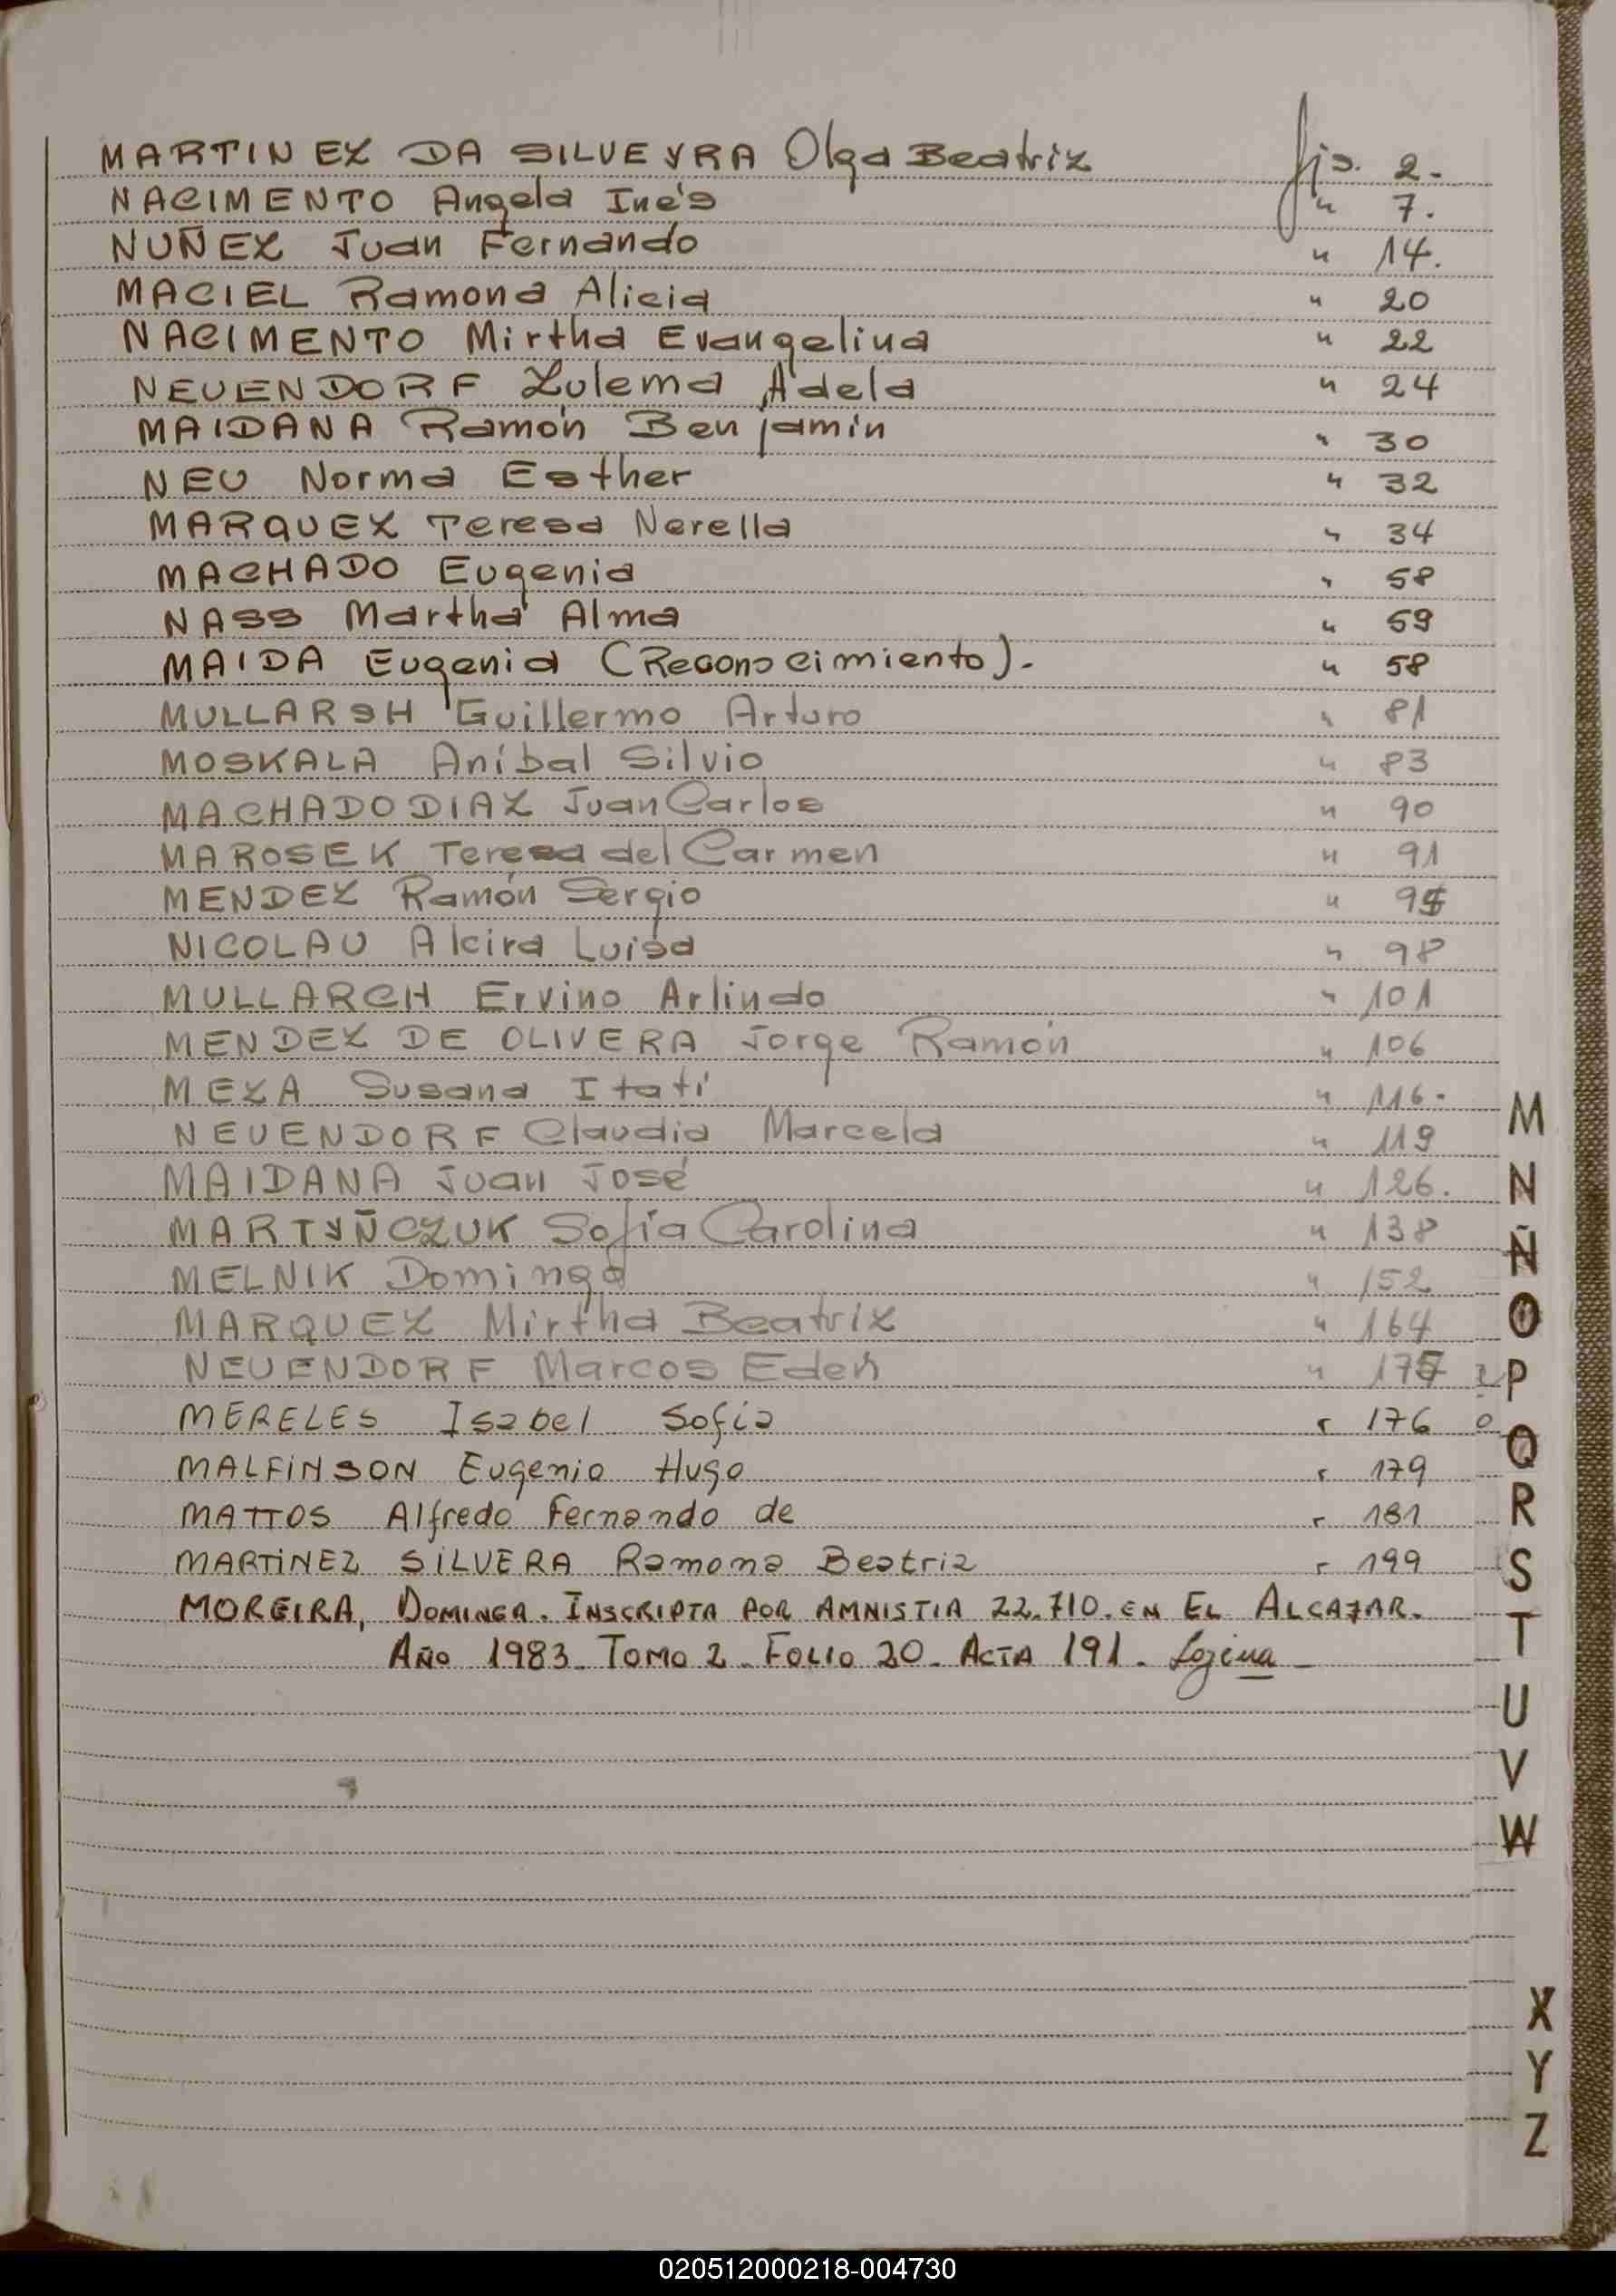 MARTINEZ DA SILVEYRA Olga Beatriz fjs. 2.
NACIMENTO Angela Inés " 7.
NUÑEZ Juan Fernando " 14.
MACIEL Ramona Alicia " 20
NACIMENTO Mirtha Evangelina " 22
NEUENDORF Zulema Adela " 24
MAIDANA Ramón Benjamín " 30
NEU Norma Esther " 32
MARQUEZ Teresa Nerella " 34
MACHADO Eugenia " 58
NASS Martha Alma " 59
MAIDA Eugenia (Reconocimiento). " 58
MULLARSH Guillermo Arturo " 81
MOSKALA Aníbal Silvio " 83
MACHADO DIAZ Juan Carlos " 90
MAROSEK Teresa del Carmen " 91
MENDEZ Ramón Sergio "
NICOLAU Alcira Luisa " 98
MULLARCH Ervino Arlindo " 101
MENDEZ DE OLIVERA Jorge Ramón " 106
MEZA Susana Itatí " 116.
NEUENDORF Claudia Marcela " 119
MAIDANA Juan José " 126.
MARTYÑCZUK Sofía Carolina " 138
MELNIK Domingo " 152
MARQUEZ Mirtha Beatriz " 164
NEUENDORF Marcos Eden "
MERELES Isabel Sofia " 176
MALFINSON Eugenio Hugo " 179
MATTOS Alfredo Fernando de " 181
MARTINEZ SILVERA Ramona Beatriz " 199
MOREIRA, DOMINGA. INSCRIPTA POR AMNISTIA 22.710. EN EL ALCAZAR.
AÑO 1983. TOMO 2. FOLIO 20. ACTA 191.
M
N
Ñ
O
P
Q
R
S
T
U
V
W
X
Y
Z
020512000218-004730